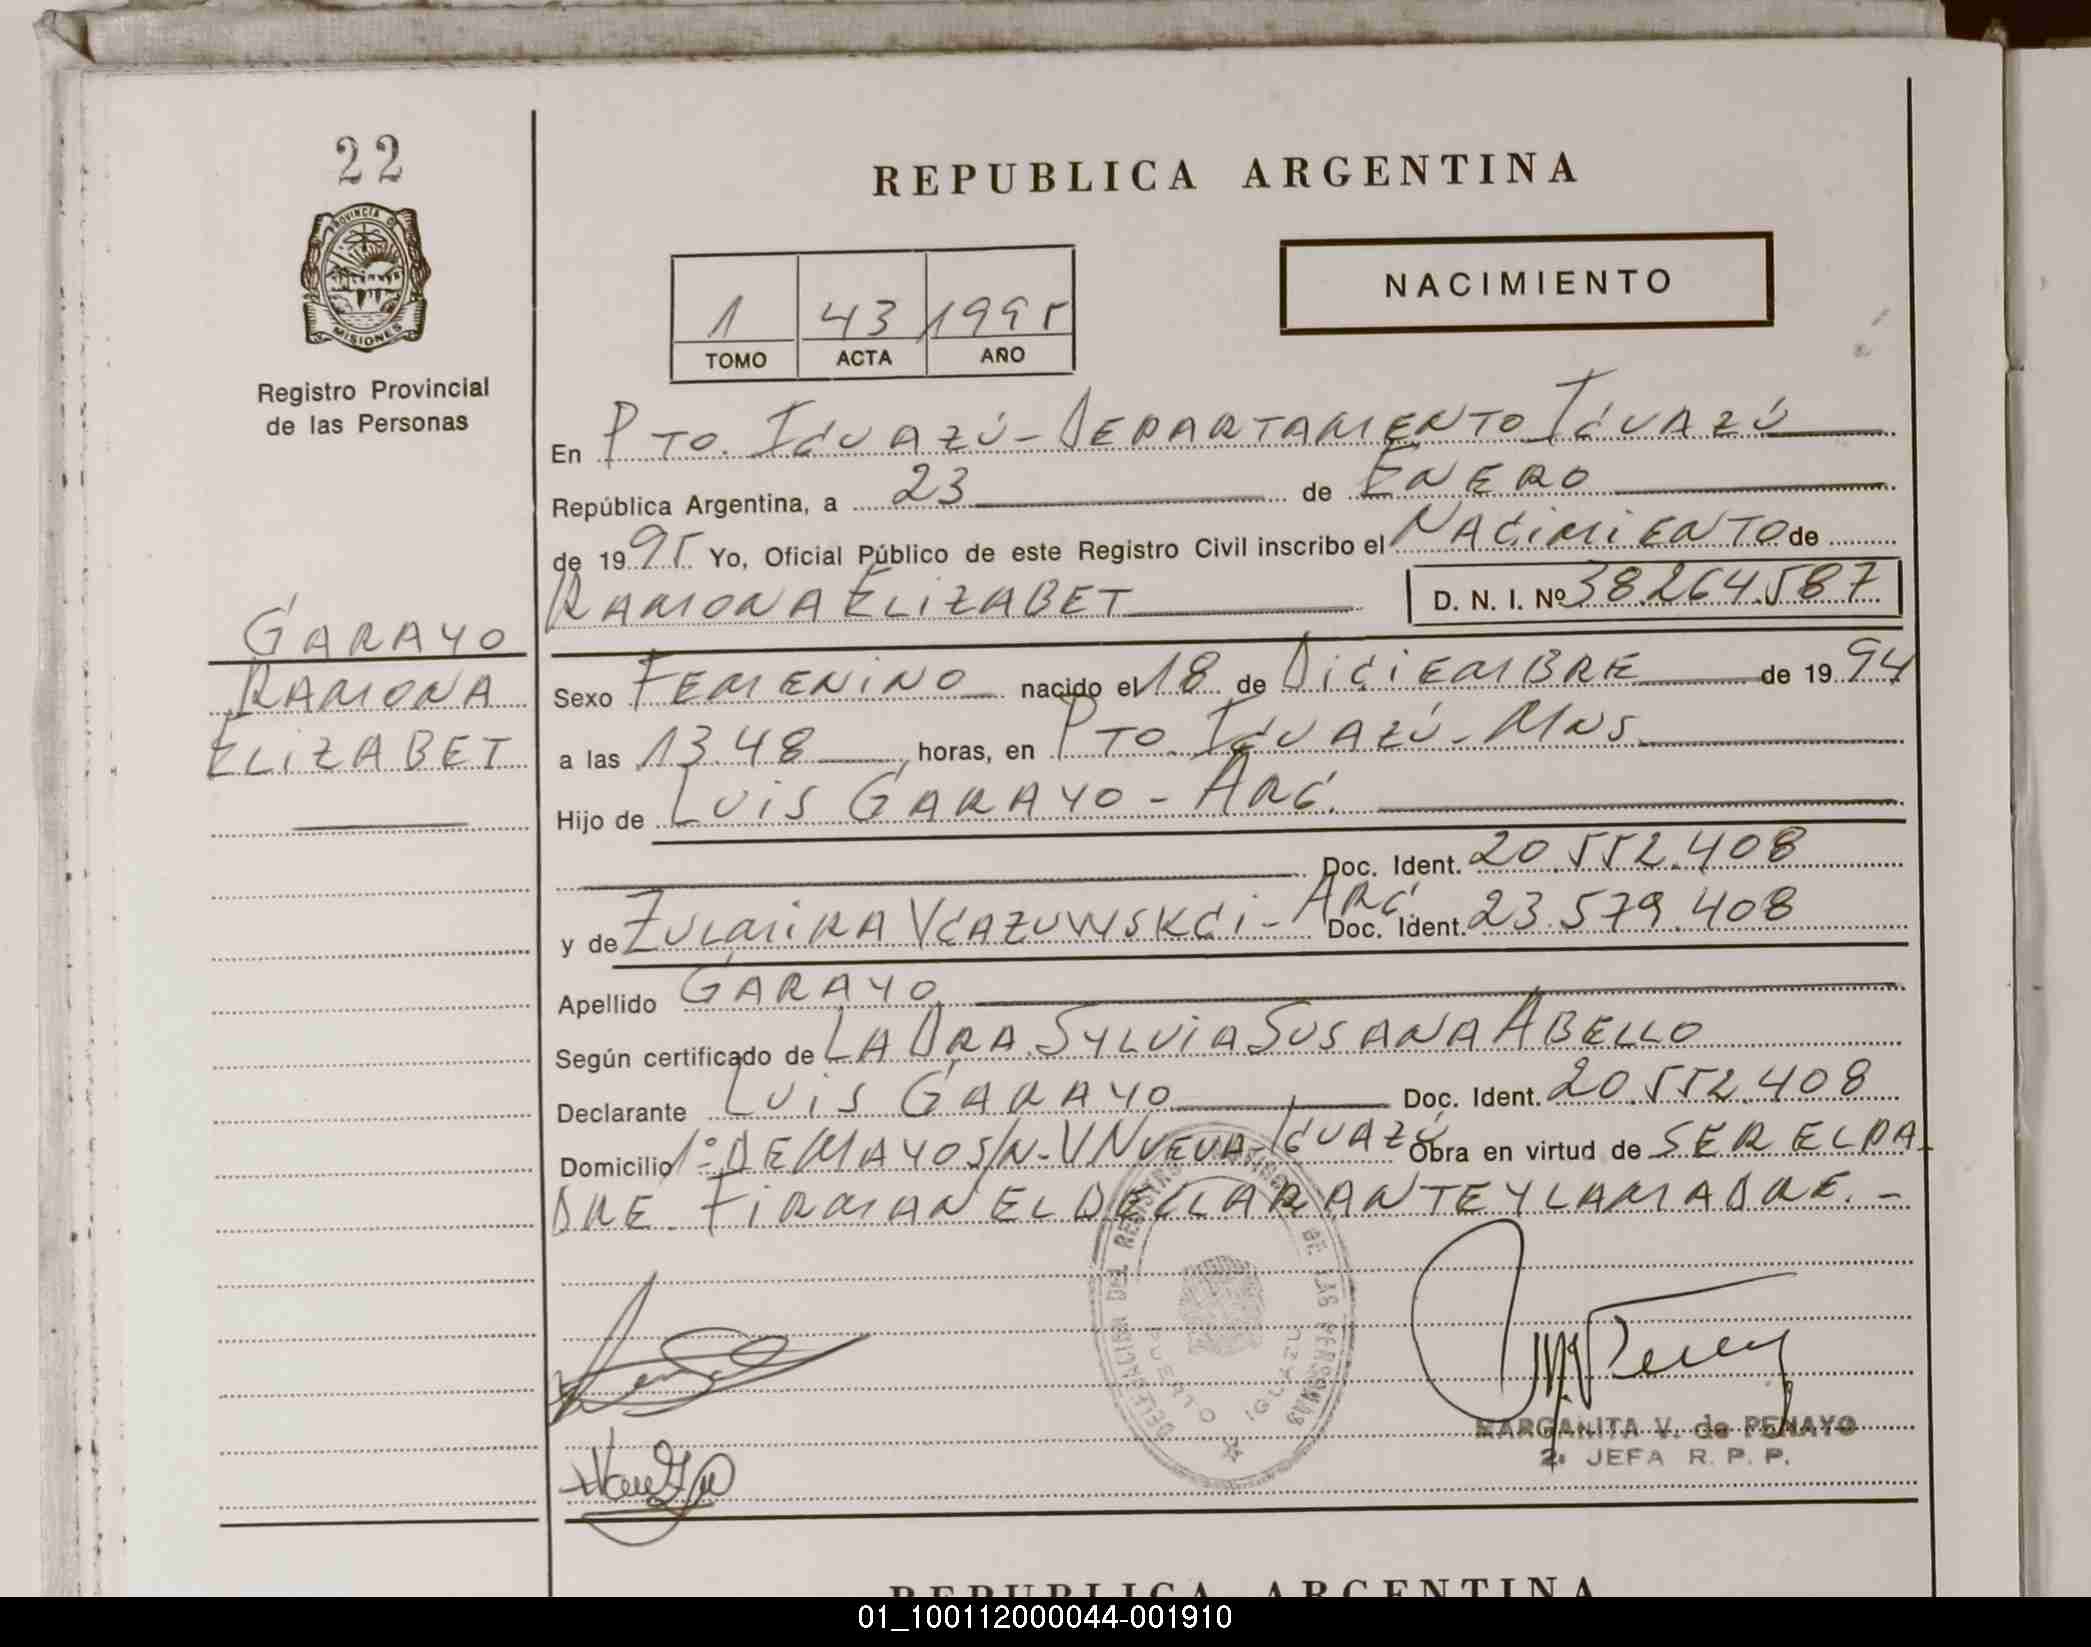 22
REPUBLICA ARGENTINA
PROVINCIA DE
MISIONES
Registro Provincial
de las Personas
NACIMIENTO
1 43 1995
TOMO ACTA AÑO
En Pto. Iguazú - Departamento Iguazú
República Argentina, a 23 de Enero
de 1995 Yo, Oficial Público de este Registro Civil inscribo el Nacimiento de
Ramona Elizabet D. N. I. Nº 38.264.587
Garayo
Ramona
Elizabet
Sexo Femenino nacido el 18 de Diciembre de 1994
a las 13.48 horas, en Pto. Iguazú - Mns.
Hijo de Luis Garayo - Arg.
Doc. Ident. 20.552.408
y de Zulmira Vgazuwskgi - Arg. Doc. Ident. 23.579.408
Apellido Garayo
Según certificado de La Dra. Sylvia Susana Abello
Declarante Luis Garayo Doc. Ident. 20.552.408
Domicilio 1º de Mayo S/N - V Nueva - Iguazú Obra en virtud de ser el pa-
dre. Firman el declarante y la madre. -
DELEGACION DEL REGISTRO DE LAS PERSONAS
PUERTO IGUAZU
MARGANITA V. de PENAYO
2ª JEFA R. P. P.
REPUBLICA ARGENTINA
01_100112000044-001910